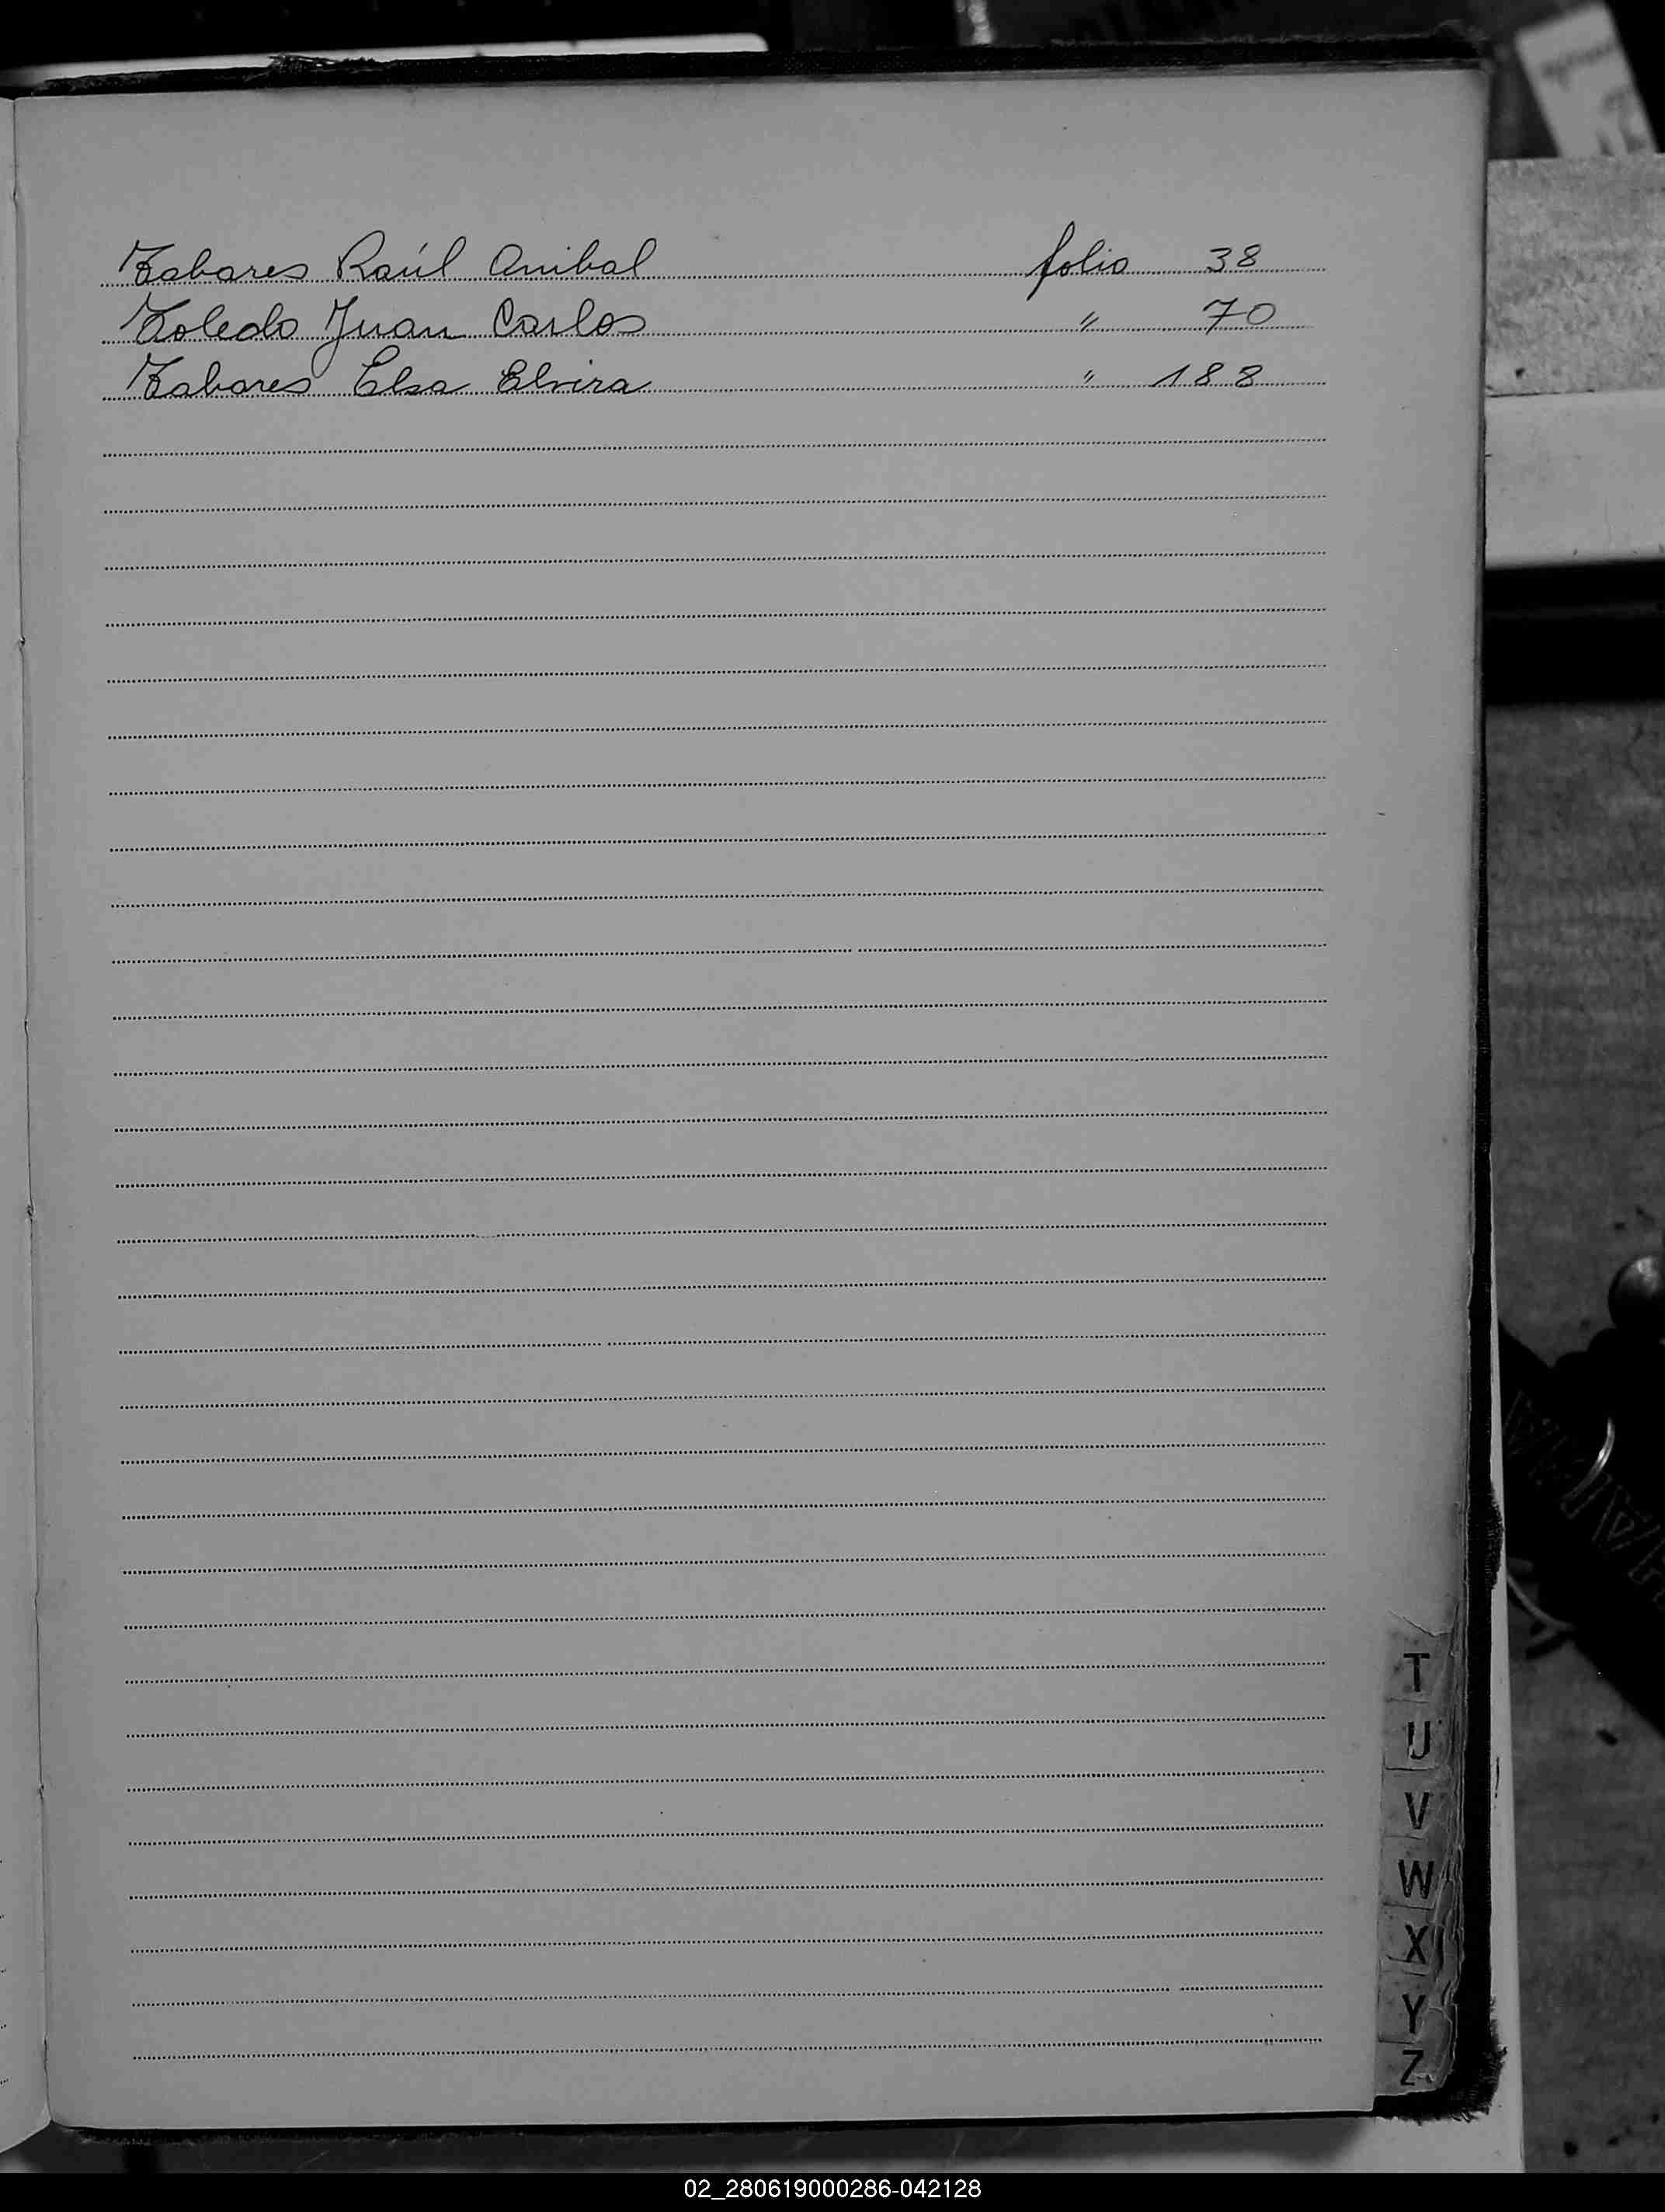 Tabares Raúl Anibal folio 38
Toledo Juan Carlos " 70
Tabares Elsa Elvira " 188
T
U
V
W
X
Y
Z
02_280619000286-042128